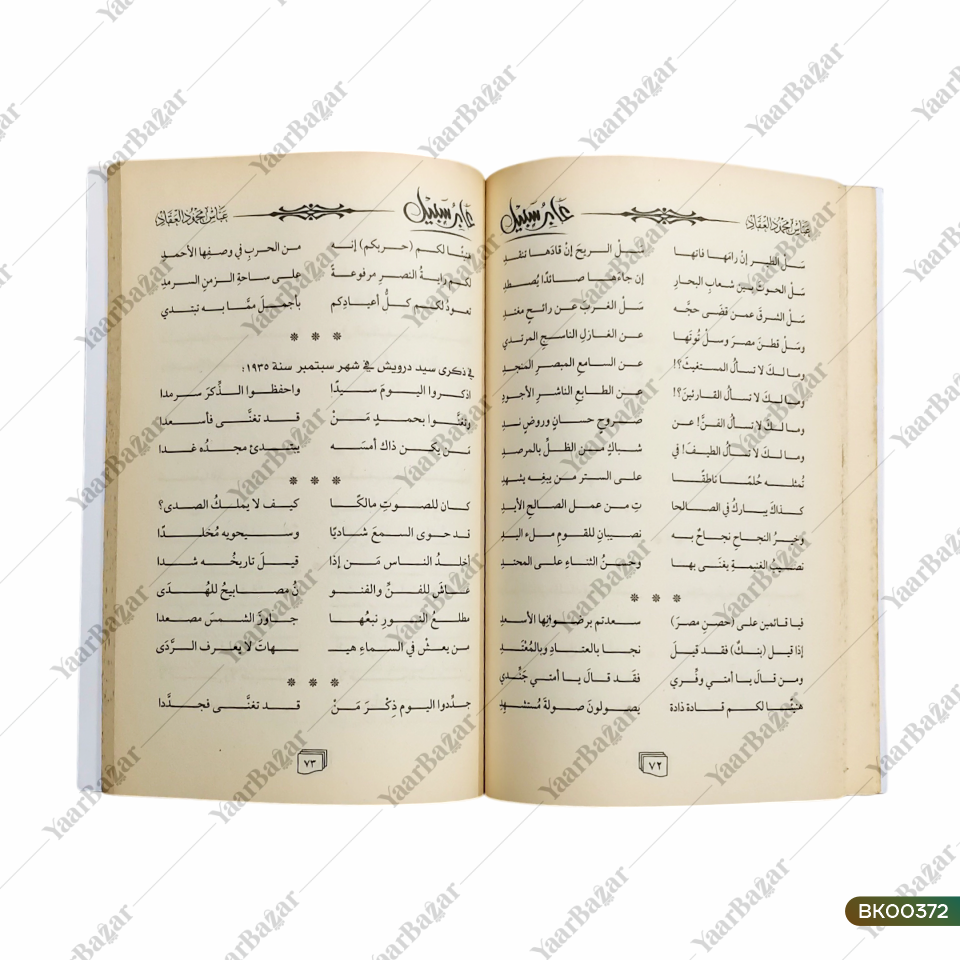 عباس محمود العقاد
عابر سبيل
سَلْ الطير إنْ رامَها فاتَها سَلْ الريحَ إنْ قادَها تنقد
سَلْ الحوت بين شعاب البحارِ إن جاءَها صائدًا يُصطد
سَل الشرقَ عمن قضَى حجَّه سَل الغربَ عن رائحٍ مغتد
وسَلْ قطنَ مصرَ وسلْ تُوتَها عن الغازلِ الناسجِ المرتدي
وما لكَ لا تسألُ المستغيثَ؟! عن السامعِ المبصرِ المنجدِ
وما لكَ لا تسألُ القارئين؟! عن الطابعِ الناشرِ الأجودِ
وما لكَ لا تسألُ الفنَّ! عن صروحٍ حسانٍ وروضٍ ند
وما لكَ لا تسألُ الطيفَ! في شباكٍ من الظلِّ بالمرصدِ
تُمثله حُلمًا ناطقًا على الستر من يبغِه يشهد
كذاكَ يباركُ في الصالحا تِ من عمل الصالح الأيد
وخيرُ النجاحِ نجاحٌ به نصيبانِ للقومِ ملء اليدِ
نصيبُ الغنيمةِ يغنَى بها وحسنُ الثناءِ على المحتدِ
* * *
فيا قائمين على (حصنِ مصرَ) سعدتم برضوانِها الأسعدِ
إذا قيل (بنكٌ) فقد قيلَ نجا بالعتادِ وبالمُعْتَدِ
ومن قالَ يا أمتي وفِّري فقد قالَ يا أمتي جَنُدي
هَنِيئًا لكم قادة ذادة يصولونَ صولةَ مُستشهِدِ
٧٢
عابر سبيل
عباس محمود العقاد
هنيئًا لكم (حربكم) إنه من الحربِ في وصفِها الأحمدِ
لكم رايةُ النصرِ مرفوعةً على ساحةِ الزمنِ السرمدِ
تعودُ لكم كلُّ أعيادِكم بأجملَ ممَّا به تبتدي
* * *
في ذكرى سيد درويش في شهر سبتمبر سنة ١٩٣٥:
اذكروا اليومَ سيدًا واحفظوا الذِّكرَ سرمدا
وتغنَّوا بحمدِ مَنْ قد تغنَّى فأسعدا
مَن يكن ذاك أمسَه يبتدئ مجدُه غدا
* * *
كان للصوتِ مالكًا كيف لا يملكُ الصدى؟
قد حوى السمعَ شاديًا وسيحويه مُخلدًا
أخلدُ الناس مَن إذا قيلَ تاريخُه شدا
عاشَ للفنِّ والفنو نُ مصابيحُ للهُدَى
مطلعُ النورِ نبعُها جاوزَ الشمسَ مصعدا
من يعشْ في السماءِ هيـ ـهات لا يعرف الرَّدَى
* * *
جدِّدوا اليوم ذِكْرَ مَنْ قد تغنَّى فجدَّدا
٧٣
BK00372
YaarBazar